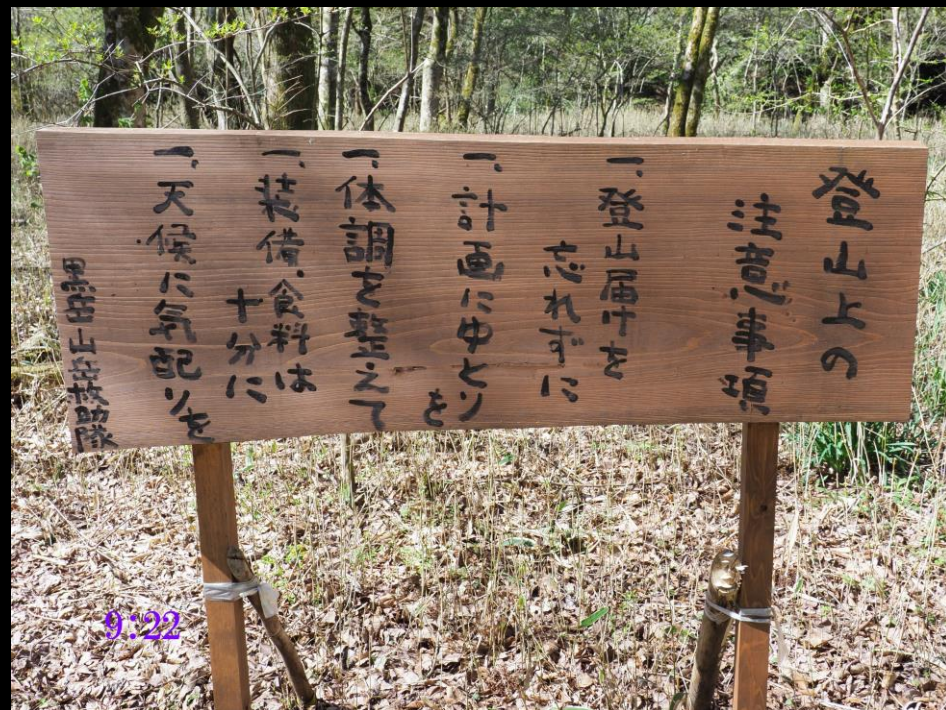 登山上の
注意事項
一、登山届けを
忘れずに
一、計画にゆとり
を
一、体調を整えて
一、装備、食料は
十分に
一、天候に気配りを
黒岳山岳救助隊
9:22